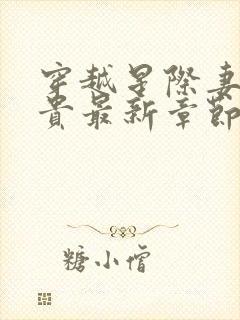 穿越星際妻
貴最新章節
糖小僧